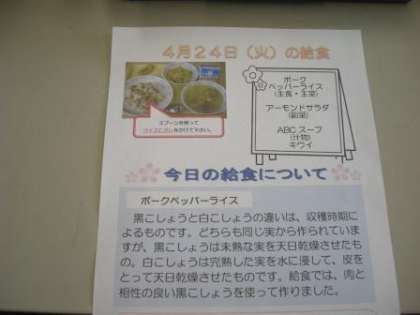 4月24日（火）の給食
ポーク
ペッパーライス
（主食・主菜）
アーモンドサラダ
（副菜）
ABCスープ
（汁物）
キウイ
スプーンを使って
をかけて下さい。
今日の給食について
ポークペッパーライス
黒こしょうと白こしょうの違いは、収穫時期に
よるものです。どちらも同じ実から作られていま
すが、黒こしょうは未熟な実を天日乾燥させたも
の。白こしょうは完熟した実を水に浸して、皮を
とって天日乾燥させたものです。給食では、肉と
相性の良い黒こしょうを使って作りました。